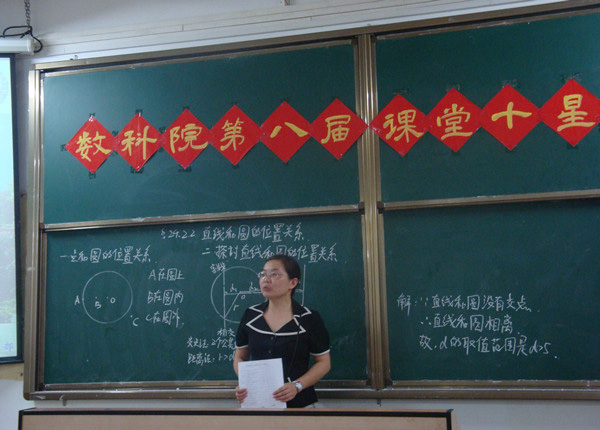 数科院第八届课堂十星
§24.2.2 直线和圆的位置关系
一.点和圆的位置关系
A
B
O
C
A在圆上
B在圆内
C在圆外
二.探讨直线和圆的位置关系
r
解:∵直线和圆没有交点
∴直线和圆相离.
故,d的取值范围是d>5.